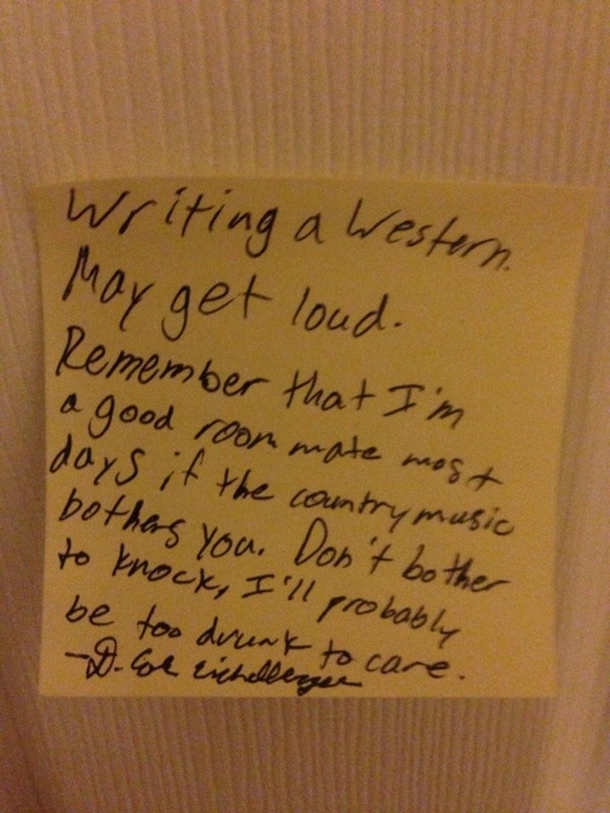 Writing a Western.
May get loud.
Remember that I'm
a good room mate most
days if the country music
bothers you. Don't bother
to knock, I'll probably
be too drunk to care.
-D.